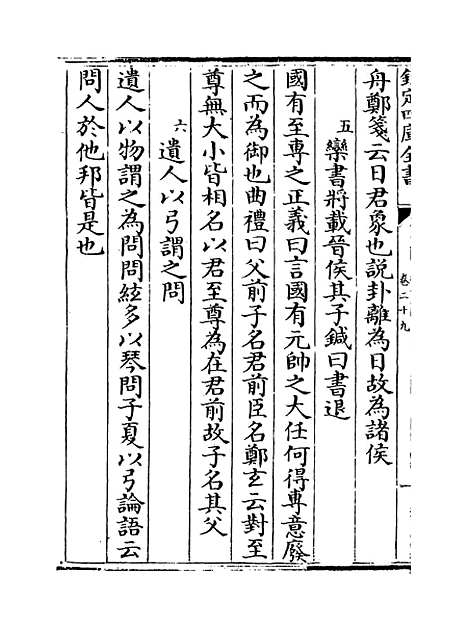 欽定四庫全書
卷二十九
舟鄭箋云日君象也説卦離為日故為諸侯
五欒書將載晉侯其子鍼曰書退
國有至専之正義曰言國有元帥之大任何得専意廢
之而為御也曲禮曰父前子名君前臣名鄭玄云對至
尊無大小皆相名以君至尊為在君前故子名其父
六遺人以弓謂之問
遺人以物謂之為問問絃多以琴問子夏以弓論語云
問人於他邦皆是也